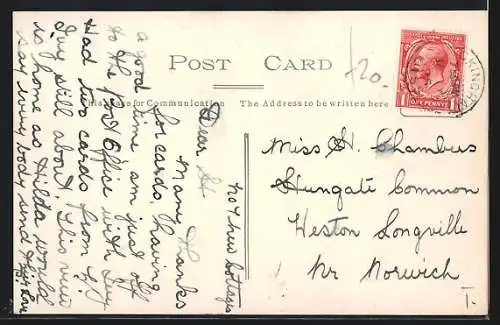 POST CARD
This Space for Communication
The Address to be written here
£20.
ONE PENNY
1 1
No 7 New Cottages
Dear H.
Many thanks
for cards, having
a good time am just off
to the Post Office with Ivy
Had two cards from G.
Ivy still about. This view
is home as Hilda would
say every body send their love
Miss H. Chambers
Hungate Common
Weston Longville
Nr Norwich
T.